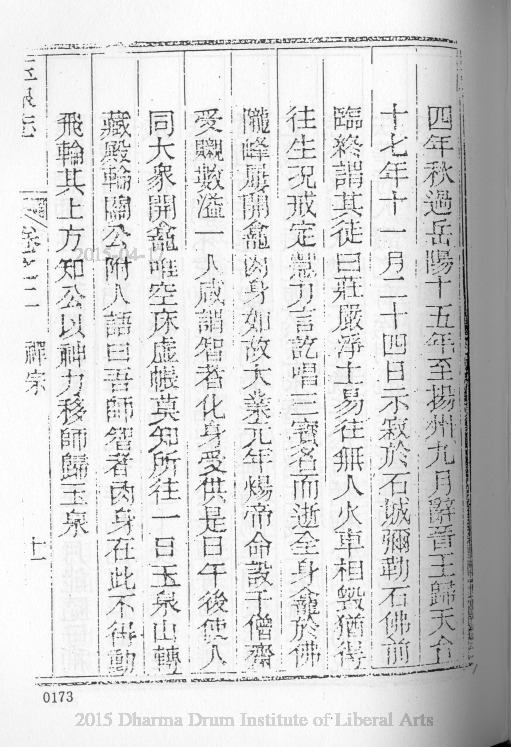 四年秋過岳陽十五年至揚州九月辭晉王歸天台
十七年十一月二十四日示寂於石城彌勒石佛前
臨終謂其徒曰莊嚴淨土易往無人火車相毀猶得
往生況戒定慧力言訖唱三寶名而逝全身龕於佛
隴峰屢開龕肉身如故大業元年煬帝命設千僧齋
受嚫數溢一人咸謂智者化身受供是日午後使人
同大眾開龕唯空床虛帳莫知所往一日玉泉山轉
藏殿輪關公附人語曰吾師智者肉身在此不得動
飛輪其上方知公以神力移師歸玉泉
玉泉志 卷之二 禪宗 十一
0173
2015 Dharma Drum Institute of Liberal Arts